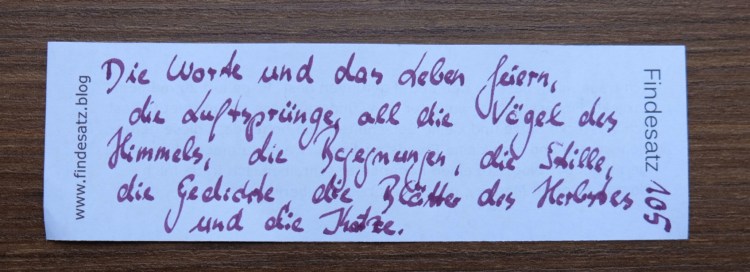 Die Worte und das Leben feiern,
die Luftsprünge, all die Vögel des
Himmels, die Begegnungen, die Stille,
die Gedichte die Blätter des Herbstes
und die Katze.
www.findesatz.blog
Findesatz 105